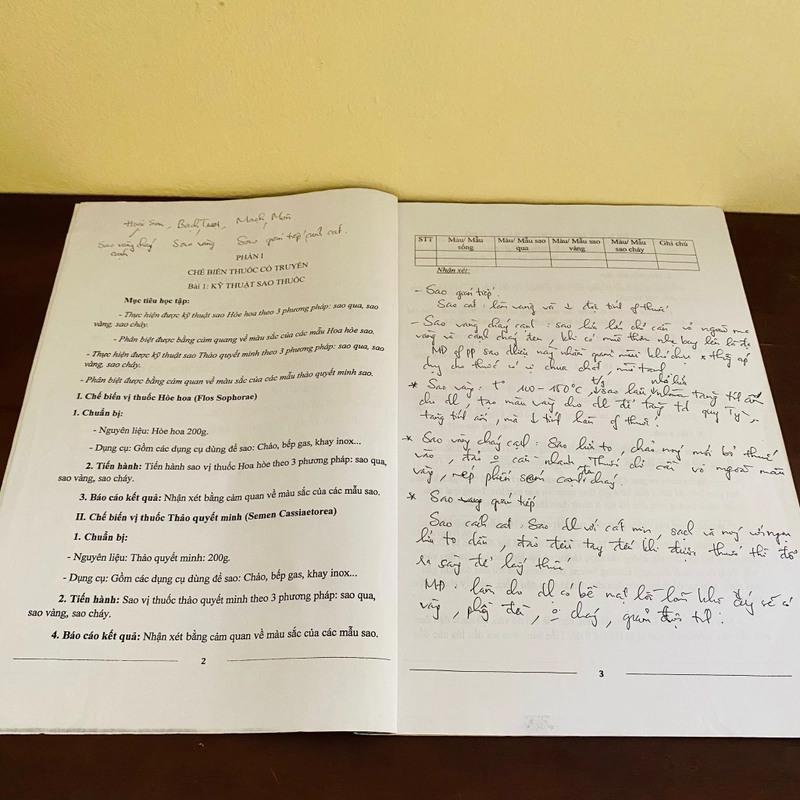 Hoài Sơn, Bạch Truật, Mạch Môn
Sao vàng cháy cạnh Sao vàng Sao gián tiếp cách cát.
PHẦN I
CHẾ BIẾN THUỐC CỔ TRUYỀN
Bài 1: KỸ THUẬT SAO THUỐC
Mục tiêu học tập:
- Thực hiện được kỹ thuật sao Hòe hoa theo 3 phương pháp: sao qua, sao
vàng, sao cháy.
- Phân biệt được bằng cảm quang về màu sắc của các mẫu Hoa hòe sao.
- Thực hiện được kỹ thuật sao Thảo quyết minh theo 3 phương pháp: sao qua, sao
vàng, sao cháy.
- Phân biệt được bằng cảm quan về màu sắc của các mẫu thảo quyết minh sao.
I. Chế biến vị thuốc Hòe hoa (Flos Sophorae)
1. Chuẩn bị:
- Nguyên liệu: Hòe hoa 200g.
- Dụng cụ: Gồm các dụng cụ dùng để sao: Chảo, bếp gas, khay inox...
2. Tiến hành: Tiến hành sao vị thuốc Hoa hòe theo 3 phương pháp: sao qua,
sao vàng, sao cháy.
3. Báo cáo kết quả: Nhận xét bằng cảm quan về màu sắc của các mẫu sao.
II. Chế biến vị thuốc Thảo quyết minh (Semen Cassiaetorea)
1. Chuẩn bị:
- Nguyên liệu: Thảo quyết minh: 200g.
- Dụng cụ: Gồm các dụng cụ dùng để sao: Chảo, bếp gas, khay inox...
2. Tiến hành: Sao vị thuốc thảo quyết minh theo 3 phương pháp: sao qua,
sao vàng, sao cháy.
4. Báo cáo kết quả: Nhận xét bằng cảm quan về màu sắc của các mẫu sao.
2
STT Màu/ Mẫu sống Màu/ Mẫu sao qua Màu/ Mẫu sao vàng Màu/ Mẫu sao cháy Ghi chú
Nhận xét:
- Sao gián tiếp
Sao cát: làm vàng và ↓ độc tính of thuốc
- Sao vàng cháy cạnh: sao lửa chỉ cần vỏ ngoài
vàng và cạnh cháy đen, khi có mùi thơm nhẹ bay lên là đc
MĐ of pp sao này nhằm giảm mùi khó chịu * thường áp
dụng cho thuốc có vị chua chát, mùi tanh
* Sao vàng: t° 100 - 150°C, sao lâu nhỏ lửa tăng tính ấm
cho dl, tạo màu vàng cho dl để tăng td quy Tỳ,
tăng tính ấm, mà ↓ tính hàn of thuốc.
* Sao vàng cháy cạnh: Sao lửa to, chảo nóng mới bỏ thuốc
vào, đảo nhanh. Thuốc chỉ cần vỏ ngoài màu
vàng, mép phiến sém cạnh cháy.
* Sao gián tiếp
Sao cách cát: Sao dl với cát mịn, sạch và nóng
lửa to dần, đảo đều tay đến khi được thuốc thì đổ
ra sàng để lấy thuốc
MĐ: làm cho dl có bề mặt lồi lõm khó cháy sẽ có
vàng, phồng đều, cháy, giảm độc tính.
3